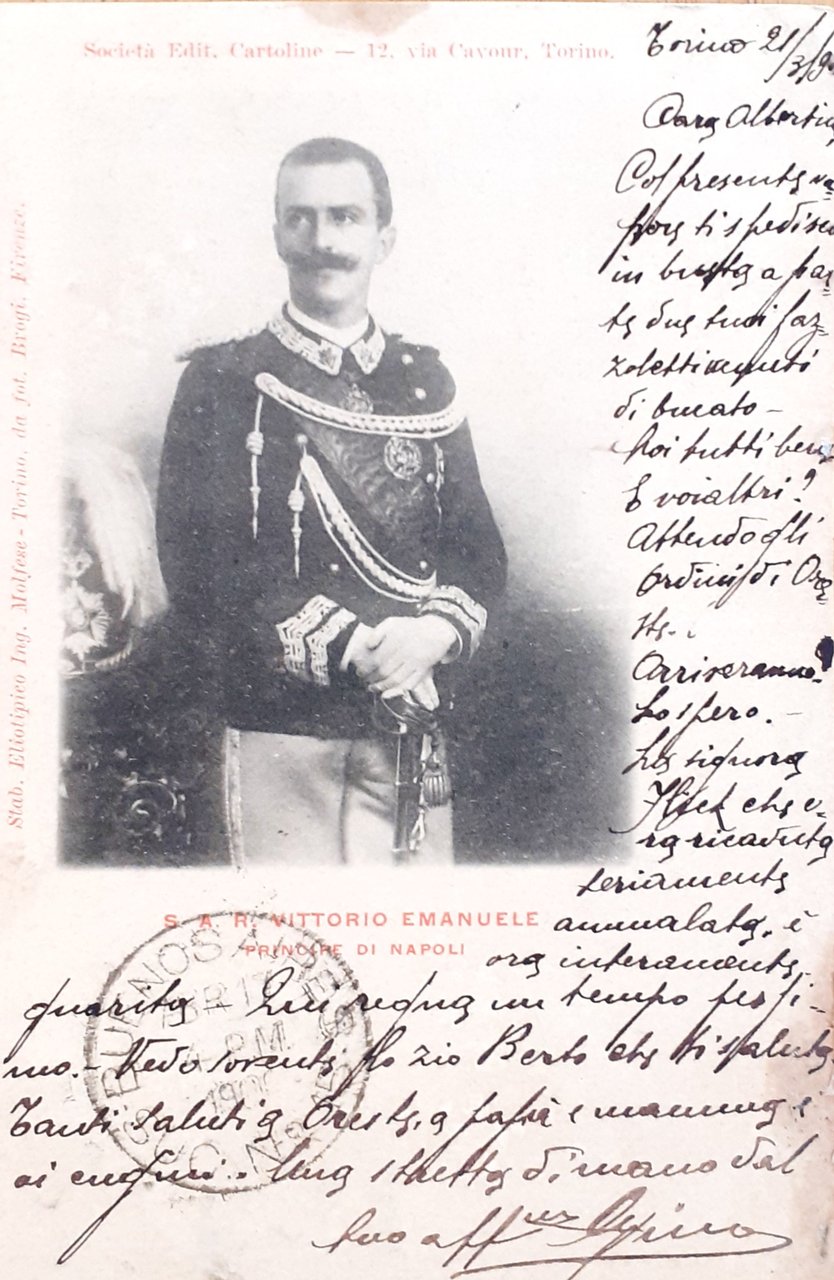 Società Edit. Cartoline — 12, via Cavour, Torino.
Stab. Eliotipico Ing. Molfese - Torino, da fot. Brogi, Firenze.
Torino 21/3/
Cara Albertina
Col presente va=
pore ti spedisco
in busta a par=
te due tuoi faz=
zoletti
di bucato —
Noi tutti bene
E voialtri?
Attendo gli
ordini di Ore
ste..
Arriveranno?
Lo spero. —
La signora
che e=
ra ricaduta
seriamente
ammalata, è
ora interamente
guarita — Qui regna un tempo pessi=
mo. — Vedo sovente lo zio Berto che ti saluta.
Tanti saluti a Oreste, a papà e mamma e
ai cugini. Una stretta di mano dal
tuo aff
S. A. R. VITTORIO EMANUELE
PRINCIPE DI NAPOLI
BUENOS AIRES
ABR 17
4 P.M.
1900